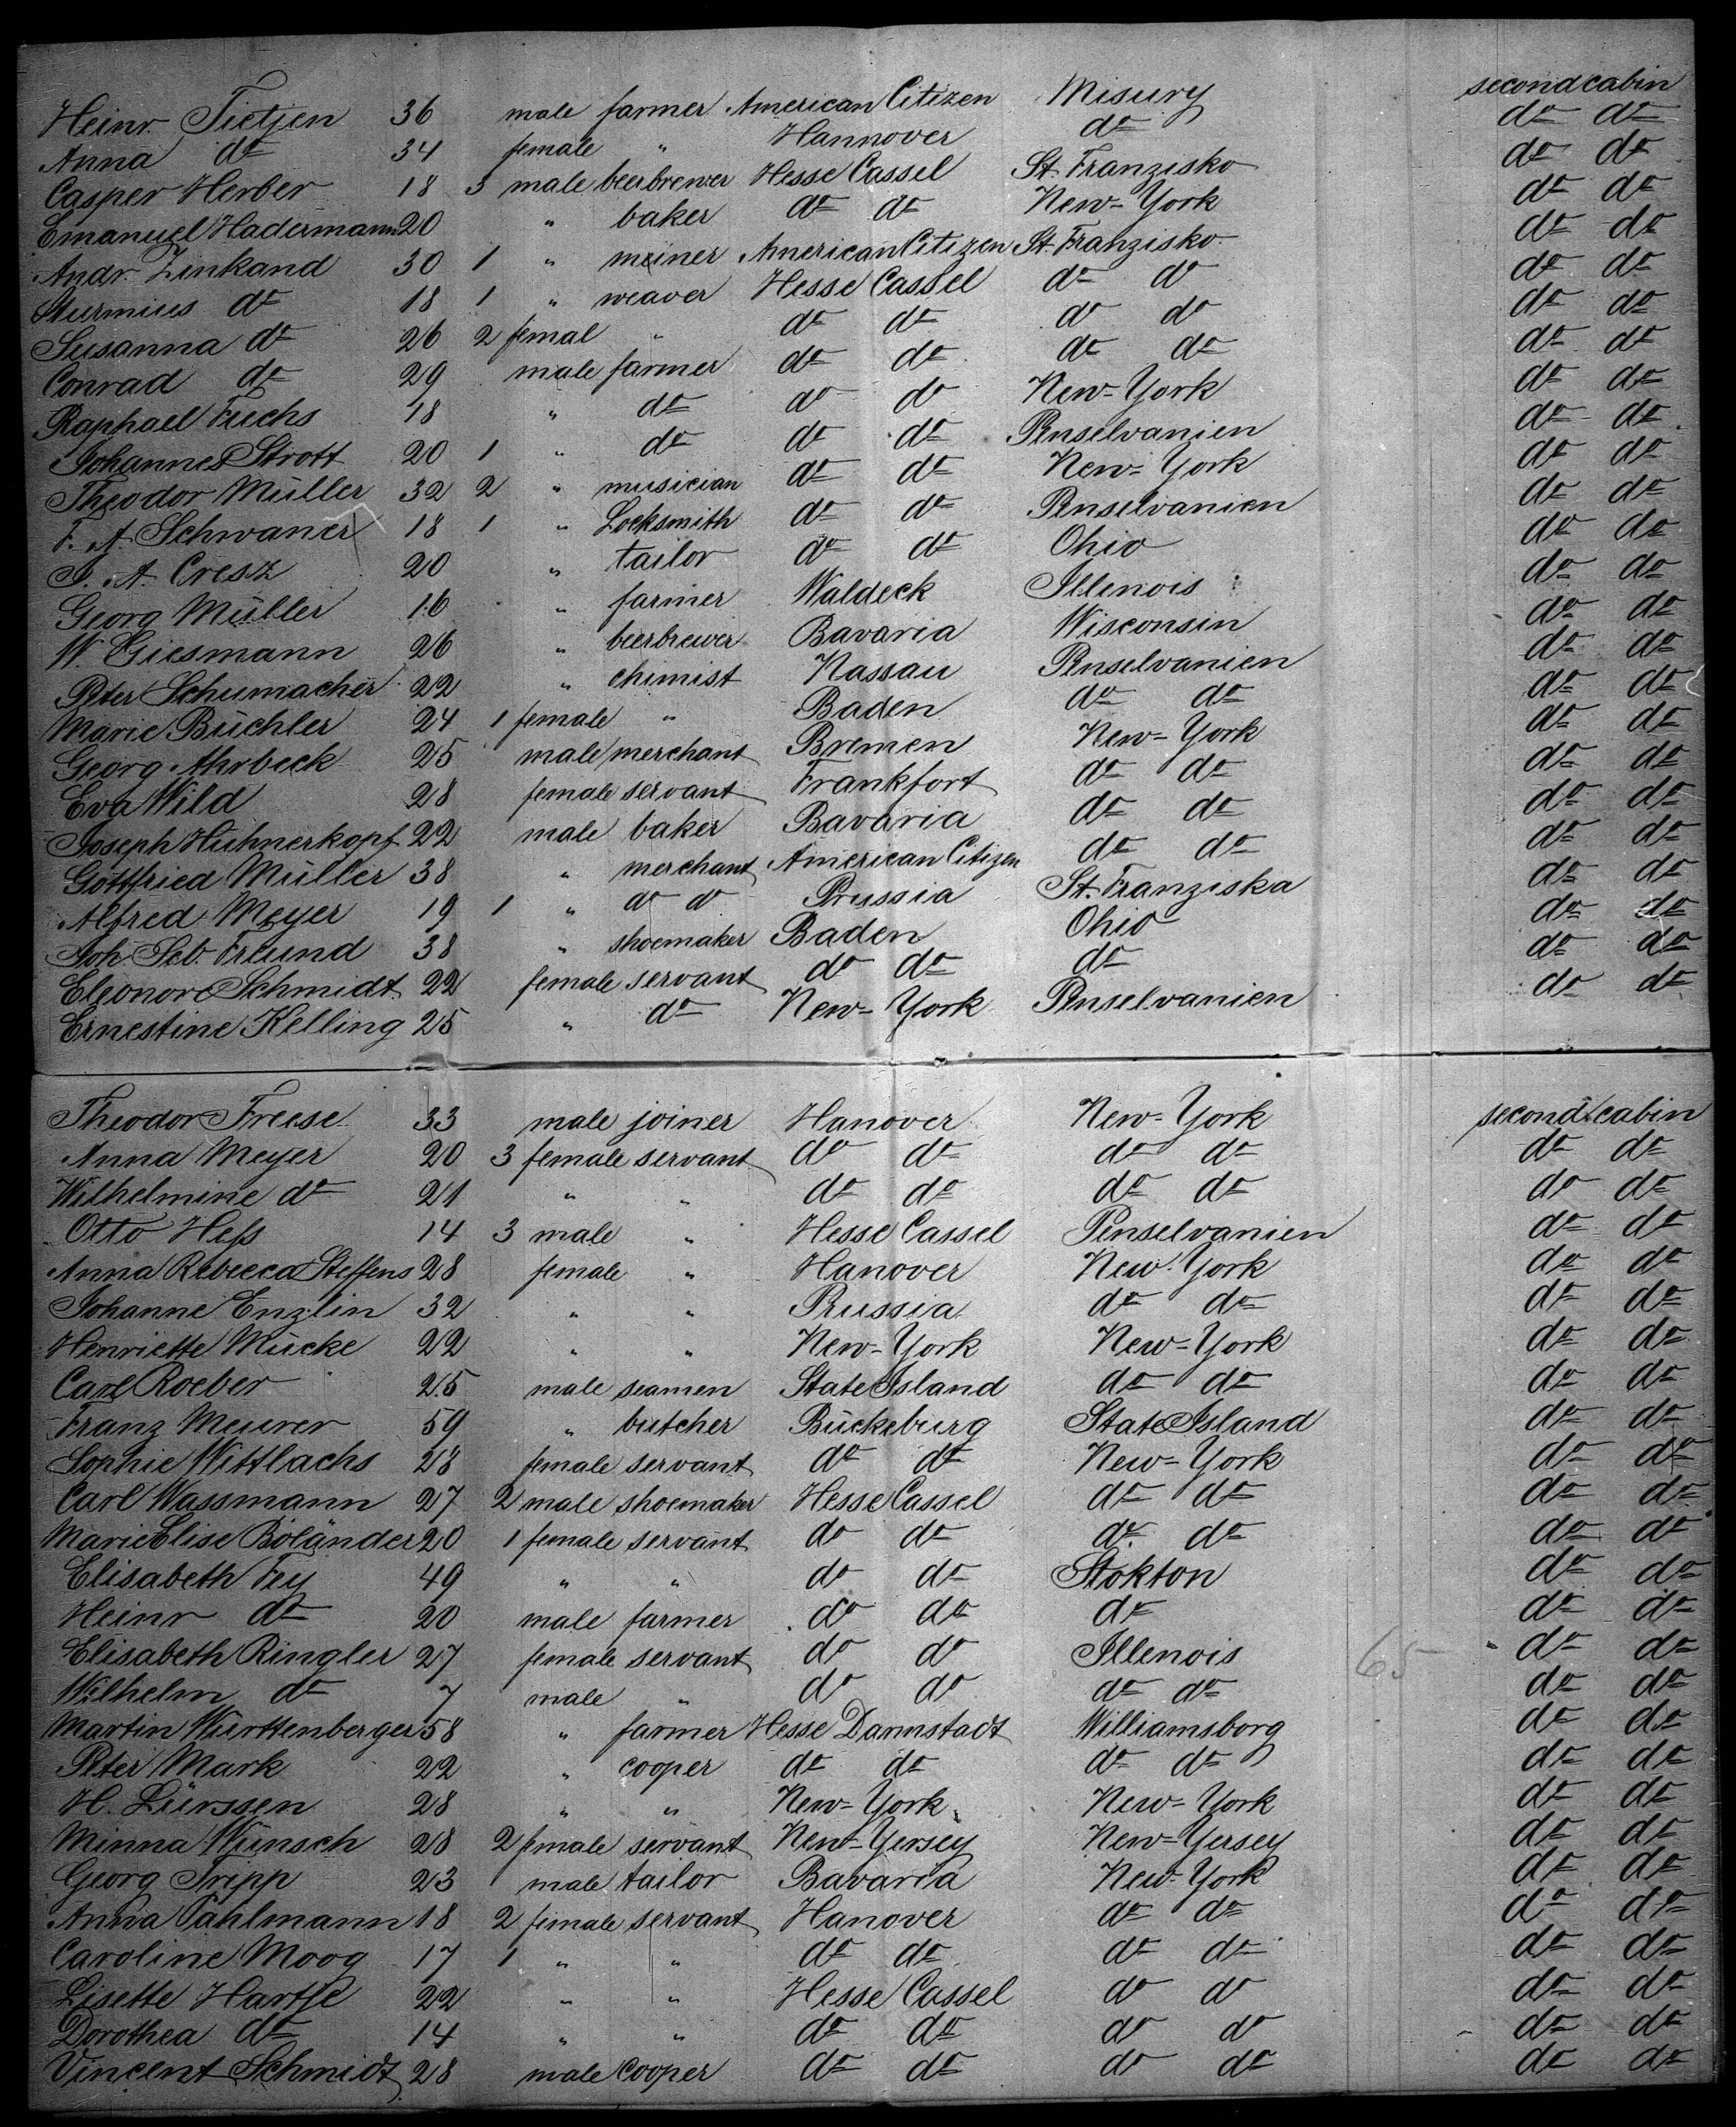 Heinr. Tietjen 36 male farmer American Citizen Misury second cabin
Anna do 34 female " Hannover do do do
Casper Herber 18 3 male beerbrewer Hesse Cassel St. Franzisko do do
Emanuel Hadermann 20 " baker do do New-York do do
Andr. Zinkand 30 1 " meiner American Citizen St. Franzisko do do
Sturmius do 18 1 " weaver Hesse Cassel do do do do
Susanna do 26 2 femal " do do do do do do
Conrad do 29 male farmer do do do do do do
Raphael Fuchs 18 " do do do New-York do do
Johannes Strott 20 1 " do do do Penselvanien do do
Theodor Müller 32 2 " musician do do New-York do do
F. A. Schwaner 18 1 " Locksmith do do Penselvanien do do
J. A. Cresz 20 " tailor do do Ohio do do
Georg Müller 16 " farmer Waldeck Illenois do do
W. Giesmann 26 " beerbrewer Bavaria Wisconsin do do
Peter Schumacher 22 " chimist Nassau Penselvanien do do
Marie Büchler 24 1 female " Baden do do do do
Georg Ahrbeck 25 male merchant Bremen New-York do do
Eva Wild 28 female servant Frankfort do do do do
Joseph Hühnerkopf 22 male baker Bavaria do do do do
Gottfried Müller 38 " merchant American Citizen do do do do
Alfred Meyer 19 1 " do do Prussia St. Franziska do do
Joh. Seb. Freund 38 " shoemaker Baden Ohio do do
Eleonore Schmidt 22 female servant do do do do do
Ernestine Kelling 25 " do New-York Penselvanien do do
Theodor Freese 33 male joiner Hanover New-York second cabin
Anna Meyer 20 3 female servant do do do do do do
Wilhelmine do 21 " " do do do do do do
Otto Heß 14 3 male " Hesse Cassel Penselvanien do do
Anna Rebecca Steffens 28 female " Hanover New-York do do
Johanne Enzlin 32 " " Prussia do do do do
Henriette Mücke 22 " " New-York New-York do do
Carl Roeber 25 male seamen State Island do do do do
Franz Meurer 59 " butcher Bückeburg State Island do do
Sophie Wittlachs 28 female servant do do New-York do do
Carl Wassmann 27 2 male shoemaker Hesse Cassel do do do do
Marie Elise Boländer 20 1 female servant do do do do do do
Elisabeth Fey 49 " " do do Stokton do do
Heinr do 20 male farmer do do do do do
Elisabeth Ringler 27 female servant do do Illenois 65 do do
Wilhelm do 7 male " do do do do do do
Martin Württenberger 58 " farmer Hesse Darmstadt Williamsborg do do
Peter Mark 22 " cooper do do do do do do
H. Lürssen 28 " " New-York New-York do do
Minna Wünsch 28 2 female servant New-Yersey New-Yersey do do
Georg Tripp 23 male tailor Bavaria New-York do do
Anna Pahlmann 18 2 female servant Hanover do do do do
Caroline Moog 17 1 " " do do do do do do
Lisette 22 " " Hesse Cassel do do do do
Dorothea do 14 " " do do do do do do
Vincent Schmidt 28 male cooper do do do do do do